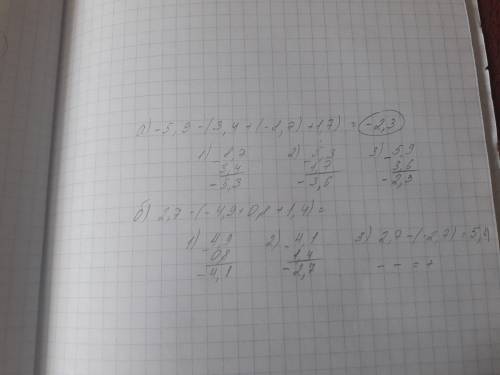 а) -5,9-(3,4+(-8,7)+1,7) = -2,3
1) - 8,7 2) - 5,3 3) - 5,9
3,4 1,7 3,6
- 5,3 - 3,6 - 2,3
б) 2,7-(-4,9+0,8+1,4)=
1) - 4,9 2) - 4,1 3) 2,7-(-2,7)=5,4
0,8 1,4 - - = +
- 4,1 - 2,7